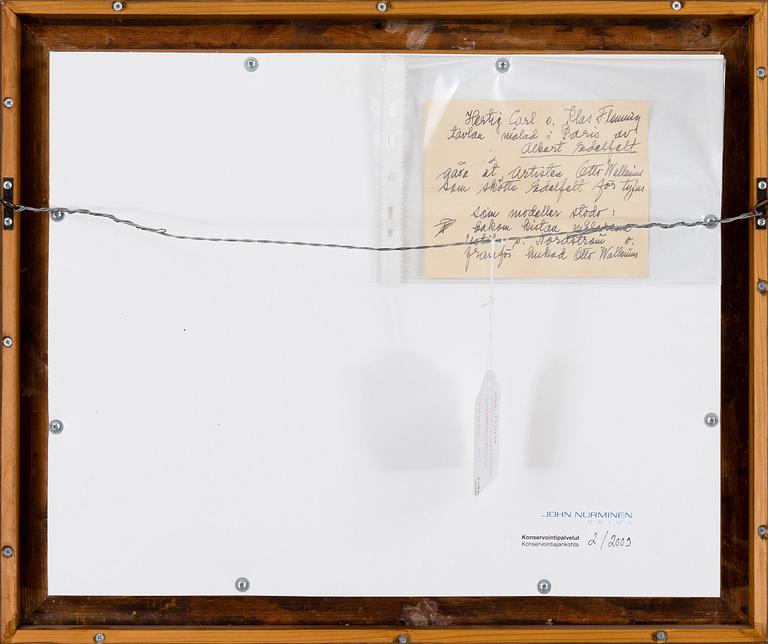 Hertig Carl o. Klas Flemming
tavlan målad i Paris av
Albert Edelfelt
gåva åt artisten Otto Wallenius
som skötte Edelfelt för tyfus
som modeller stodo:
bakom kistan
o. Nordström o.
framför hukad Otto Wallenius
JOHN NURMINEN
PRIMA
Konservointipalvelut
Konservointiajankohta 2/2009